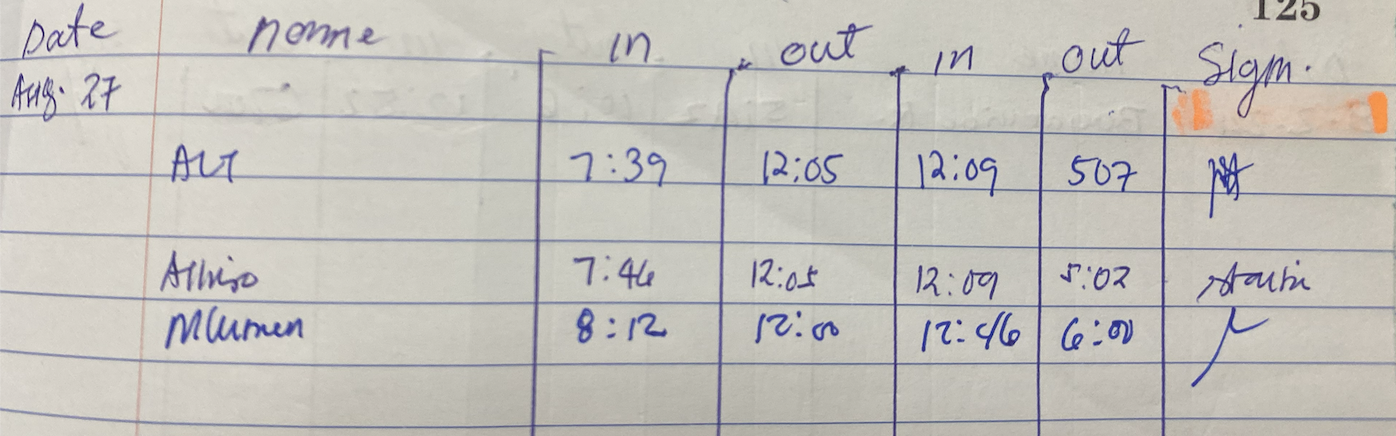 125
Date Name In out In out Sign.
Aug. 27
7:39 12:05 12:09 507
7:46 12:05 12:09 5:02
8:12 12:00 12:46 6:00